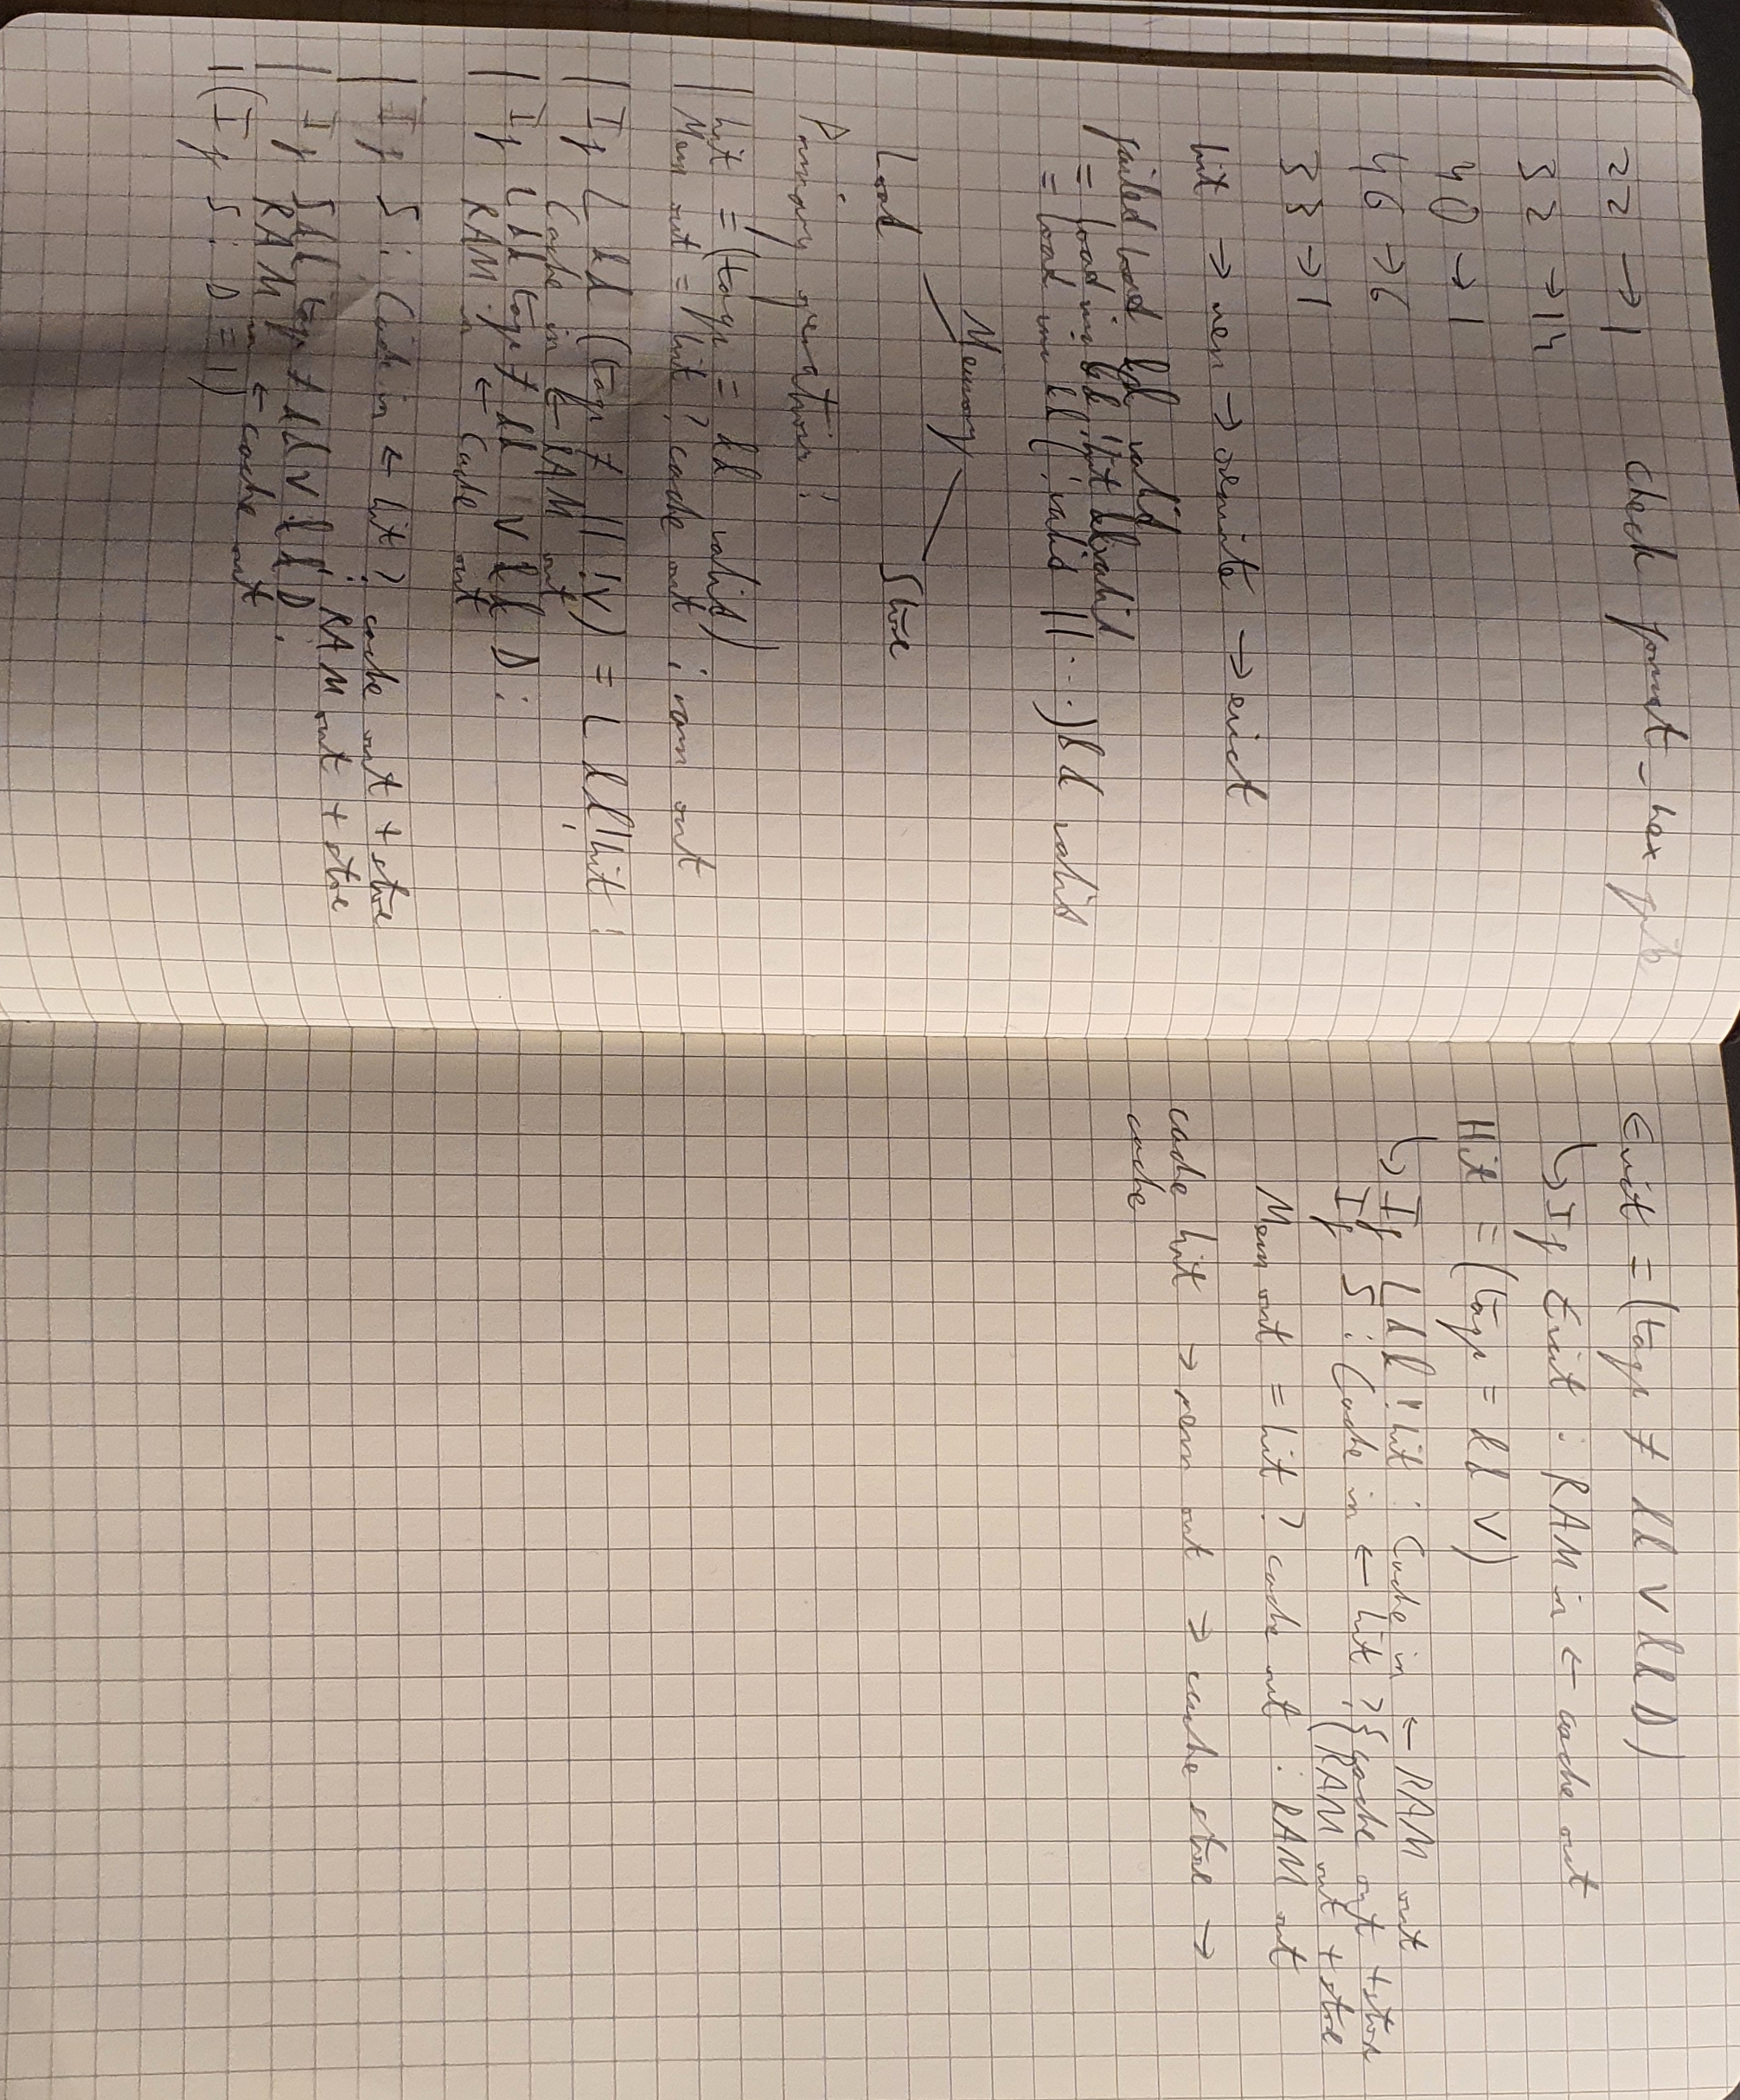 22 → 1
check format_hex
32 → 14
40 → 1
46 → 6
33 → 1
hit → wen → overwrite → evict
failed load && valid
= load ins && !hit && valid
= load ins && (!valid || ...) && valid
Memory
Load
Store
Primary operations:
hit = (tags = && valid)
Mem out = hit ? cache out : ram out
If L && (tags ≠ || !V) = L && !hit :
Cache in ← RAM out
If L && tags ≠ && V && D :
RAM in ← Cache out
If S : Cache in ← hit ? cache out + store
: RAM out + store
If S && tags ≠ && V && D :
RAM in ← cache out
(If S : D = 1)
Evict = (tags ≠ && V && D)
↳ If Evict : RAM in ← cache out
Hit = (tags = && V)
↳ If L && !hit : Cache in ← RAM out
If S : Cache in ← hit ? { cache out + store
RAM out + store
Mem out = hit ? cache out : RAM out
cache hit → mem out → cache store →
cache